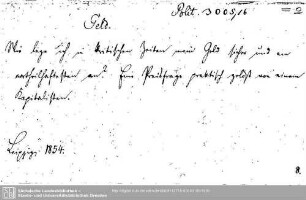 Polit. 3005/16
Geld.
Wie lege ich in kritischen Zeiten mein Geld sicher und am
vortheilhaftesten an? Eine Preisfrage praktisch gelöst von einem
Kapitalisten.
Leipzig, 1854.
8.
Sächsische Landesbibliothek -
Staats- und Universitätsbibliothek Dresden